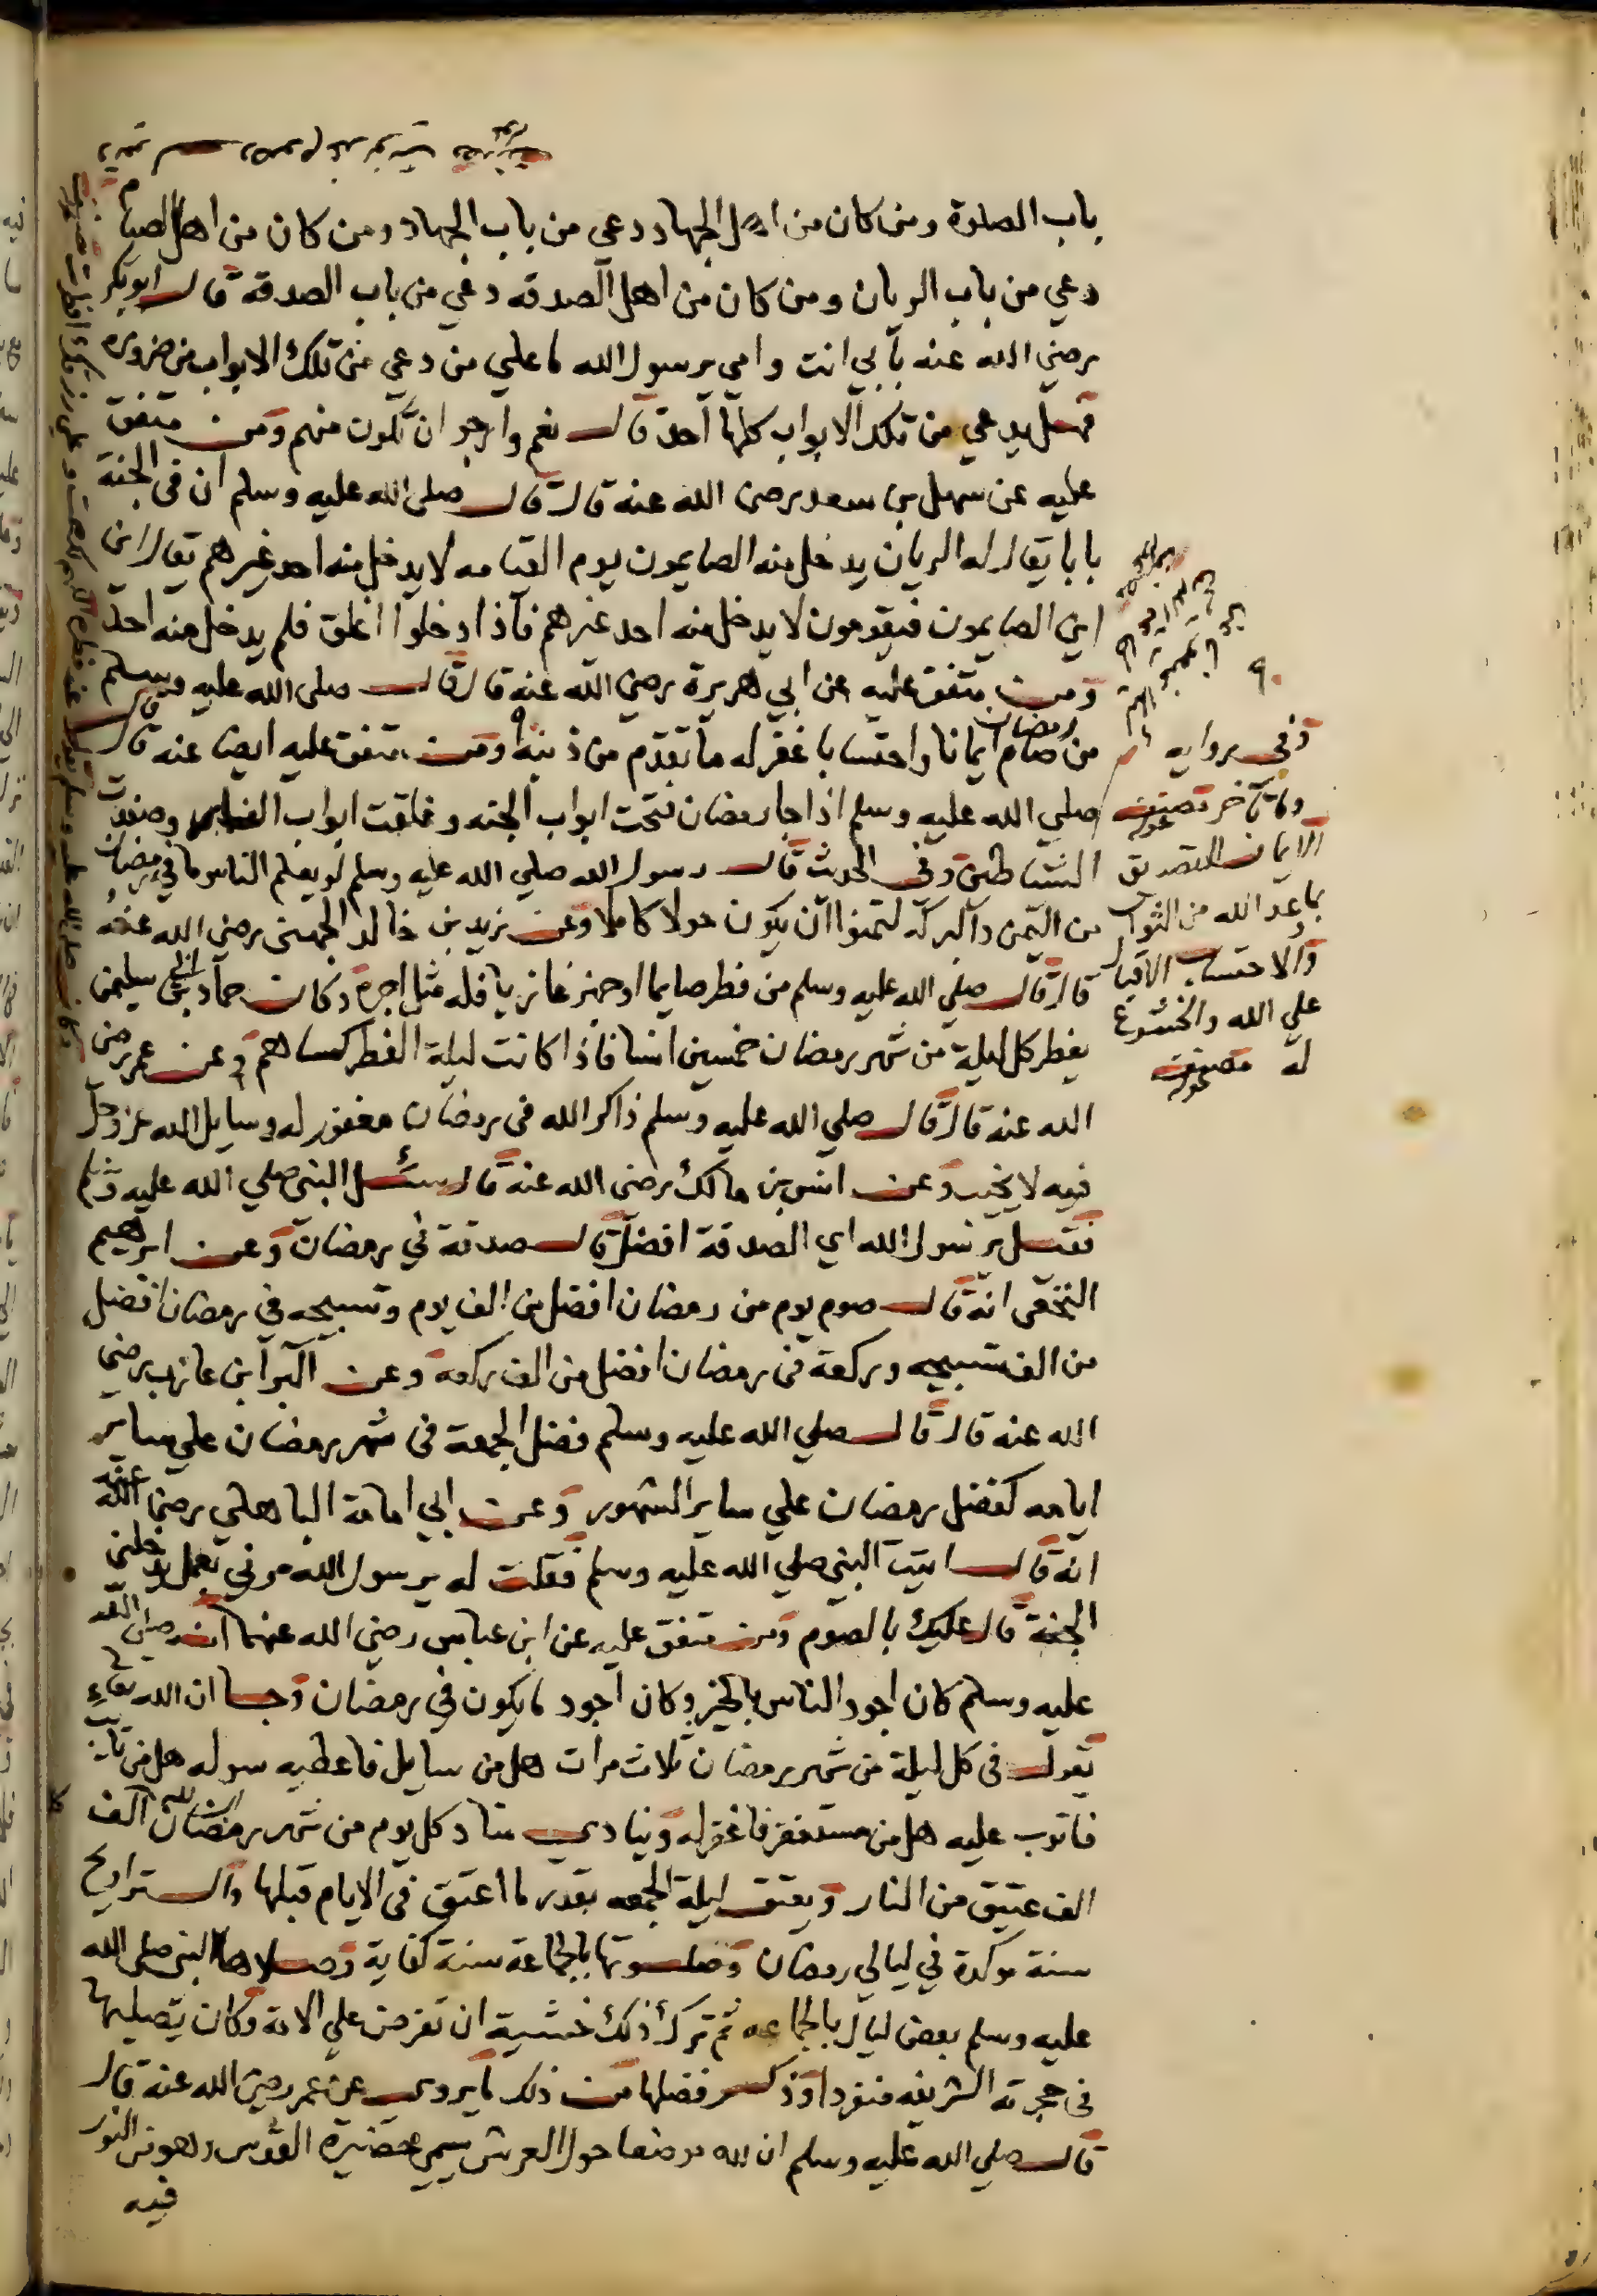 باب الصلوة ومن كان من اهل الجهاد دعي من باب الجهاد ومن كان من اهل الصيام
دعي من باب الريان ومن كان من اهل الصدقه دعي من باب الصدقة قال ابو بكر
رضي الله عنه بأبي انت وامي يرسول الله ما علي من دعي من تلك الابواب من ضروره
فهل يدعي من تلك الابواب كلها احد قال نعم وارجو ان تكون منهم ومن متفق
عليه عن سهل بن سعد رضى الله عنه قال قال صلى الله عليه وسلم ان فى الجنة
بابا يقال له الريان يدخل منه الصايمون يوم القيامه لا يدخل منه احد غيرهم يقال اين
اين الصايمون فيقومون لا يدخل منه احد غيرهم فاذا دخلوا اغلق فلم يدخل منه احد
ومن متفق عليه عن ابي هريرة رضي الله عنه قال قال صلى الله عليه وسلم
من صام رمضان ايمانا واحتسابا غفر له ما تقدم من ذنبه ومن متفق عليه ايضا عنه قال قال
صلي الله عليه وسلم اذا جا رمضان فتحت ابواب الجنه وغلقت ابواب وصفدت
الشياطين وفى الحديث قال رسول الله صلي الله عليه وسلم لو يعلم الناس ما في رمضان
من اليمن والبركه لتمنوا ان يكون حولا كاملا وعن زيد بن خالد الجهنى رضي الله عنه
قال قال صلي الله عليه وسلم من فطر صايما او جهز غازيا فله مثل اجره وكان حماد بن ابي سليمن
يفطر كل ليلة من شهر رمضان خمسين انسا فاذا كانت ليلة الفطر كساهم وعن عمر رضى
الله عنه قال قال صلي الله عليه وسلم ذاكر الله فى رمضان مغفور له وسايل الله عز وجل
فيه لا يخيب وعن انس بن مالك رضى الله عنه قال سئل النبي صلي الله عليه وسلم
فقيل يرسول الله اي الصدقة افضل قال صدقة في رمضان وعن ابرهيم
النخعى انه قال صوم يوم من رمضان افضل من الف يوم وتسبيحه في رمضان افضل
من الف تسبيحه وركعة فى رمضان افضل من الف ركعة وعن البرا بن عازب رضي
الله عنه قال قال صلي الله عليه وسلم فضل الجمعة فى شهر رمضان علي ساير
ايامه كفضل رمضان علي ساير الشهور وعن ابي امامة الباهلي رضى الله عنه
انه قال اتيت النبي صلي الله عليه وسلم فقلت له يرسول الله مرني بعمل يدخلنى
الجنة قال عليك بالصوم ومن متفق عليه عن ابن عباس رضي الله عنهما انه صلى الله
عليه وسلم كان اجود الناس بالخير وكان اجود ما يكون في رمضان وجا ان الله تعالي
يقول فى كل ليلة من شهر رمضان ثلاث مرات هل من سايل فاعطيه سوله هل من تايب
فاتوب عليه هل من مستغفر فاغفر له وينادي مناد كل يوم من شهر رمضان ان لله الف
الف عتيق من النار ويعتق ليلة الجمعه بقدر ما اعتق فى الايام قبلها والتراويح
سنة موكدة في ليالي رمضان وصلوتها بالجماعة سنة كفاية وصلاها النبي صلى الله
عليه وسلم بعض ليال بالجماعه ثم ترك ذلك خشية ان تفرض علي الامة وكان يصليها
فى حجرته الشريفه منفردا وذكر فضلها من ذلك ما يروى عن عمر رضى الله عنه قال
قال صلي الله عليه وسلم ان لله موضعا حول العرش سمي حضيرة القدس وهو من النور
فيه
وفى روايه
وما تأخر
الايمان التصديق
بما وعد الله من الثواب
والاحتساب الاقبال
علي الله والخشوع
له